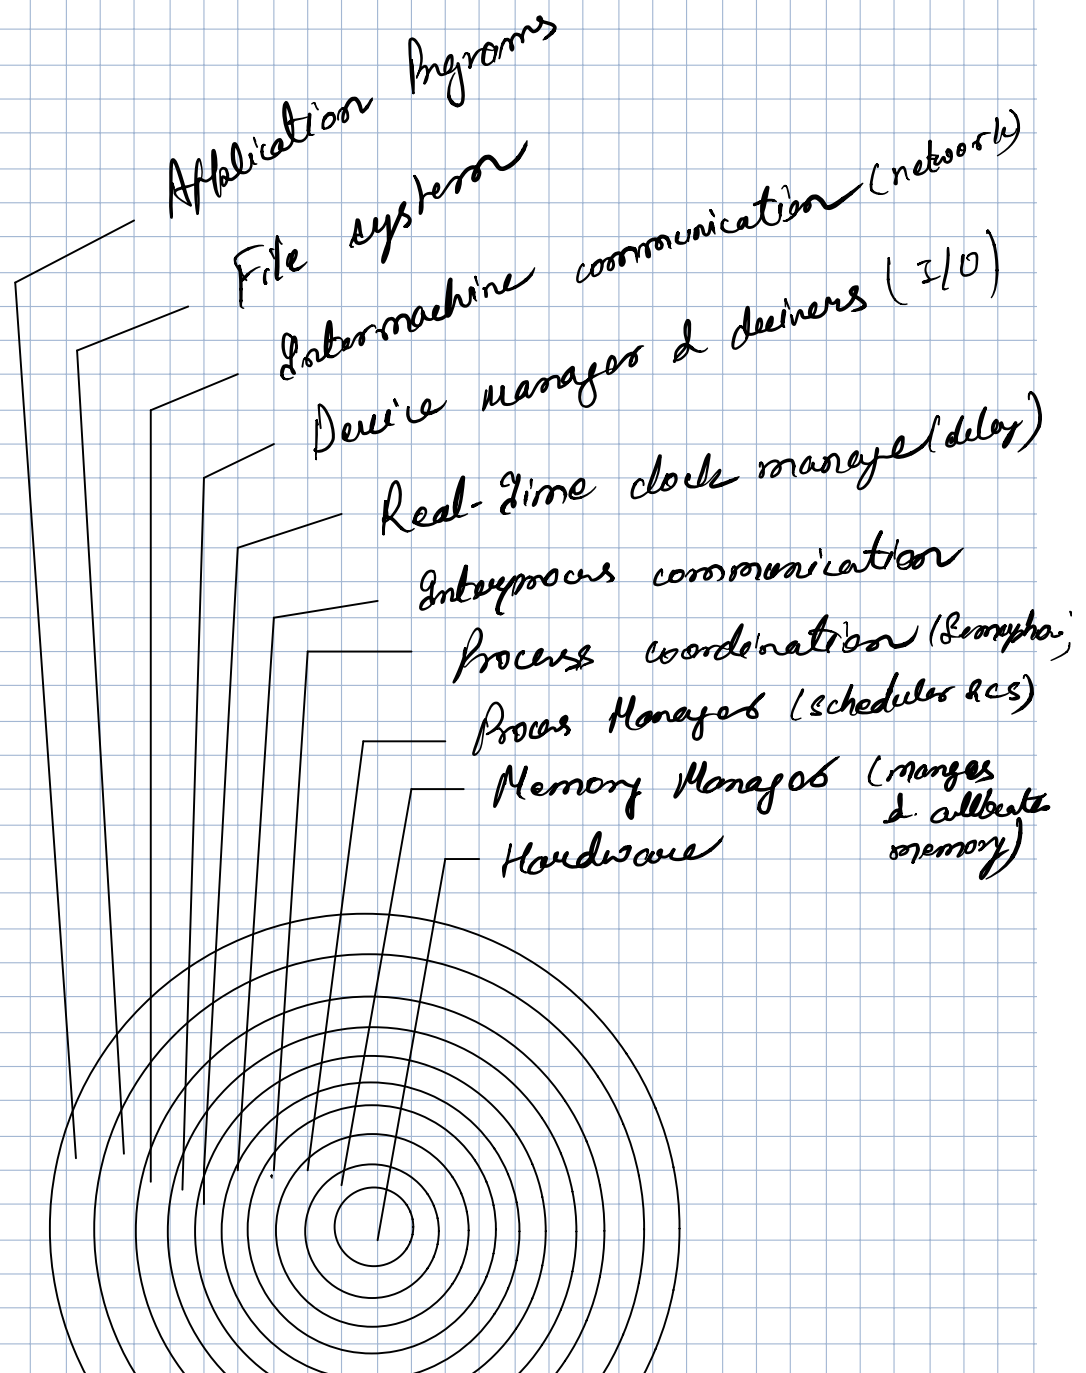 Application Programs
File system
Intermachine communication (network)
Device Manager & drivers (I/O)
Real-Time clock manager (delay)
Interprocess communication
Process coordination (Semapho
Process Manager (scheduler & CS)
Memory Manager (manges
& allocates
memory)
Hardware